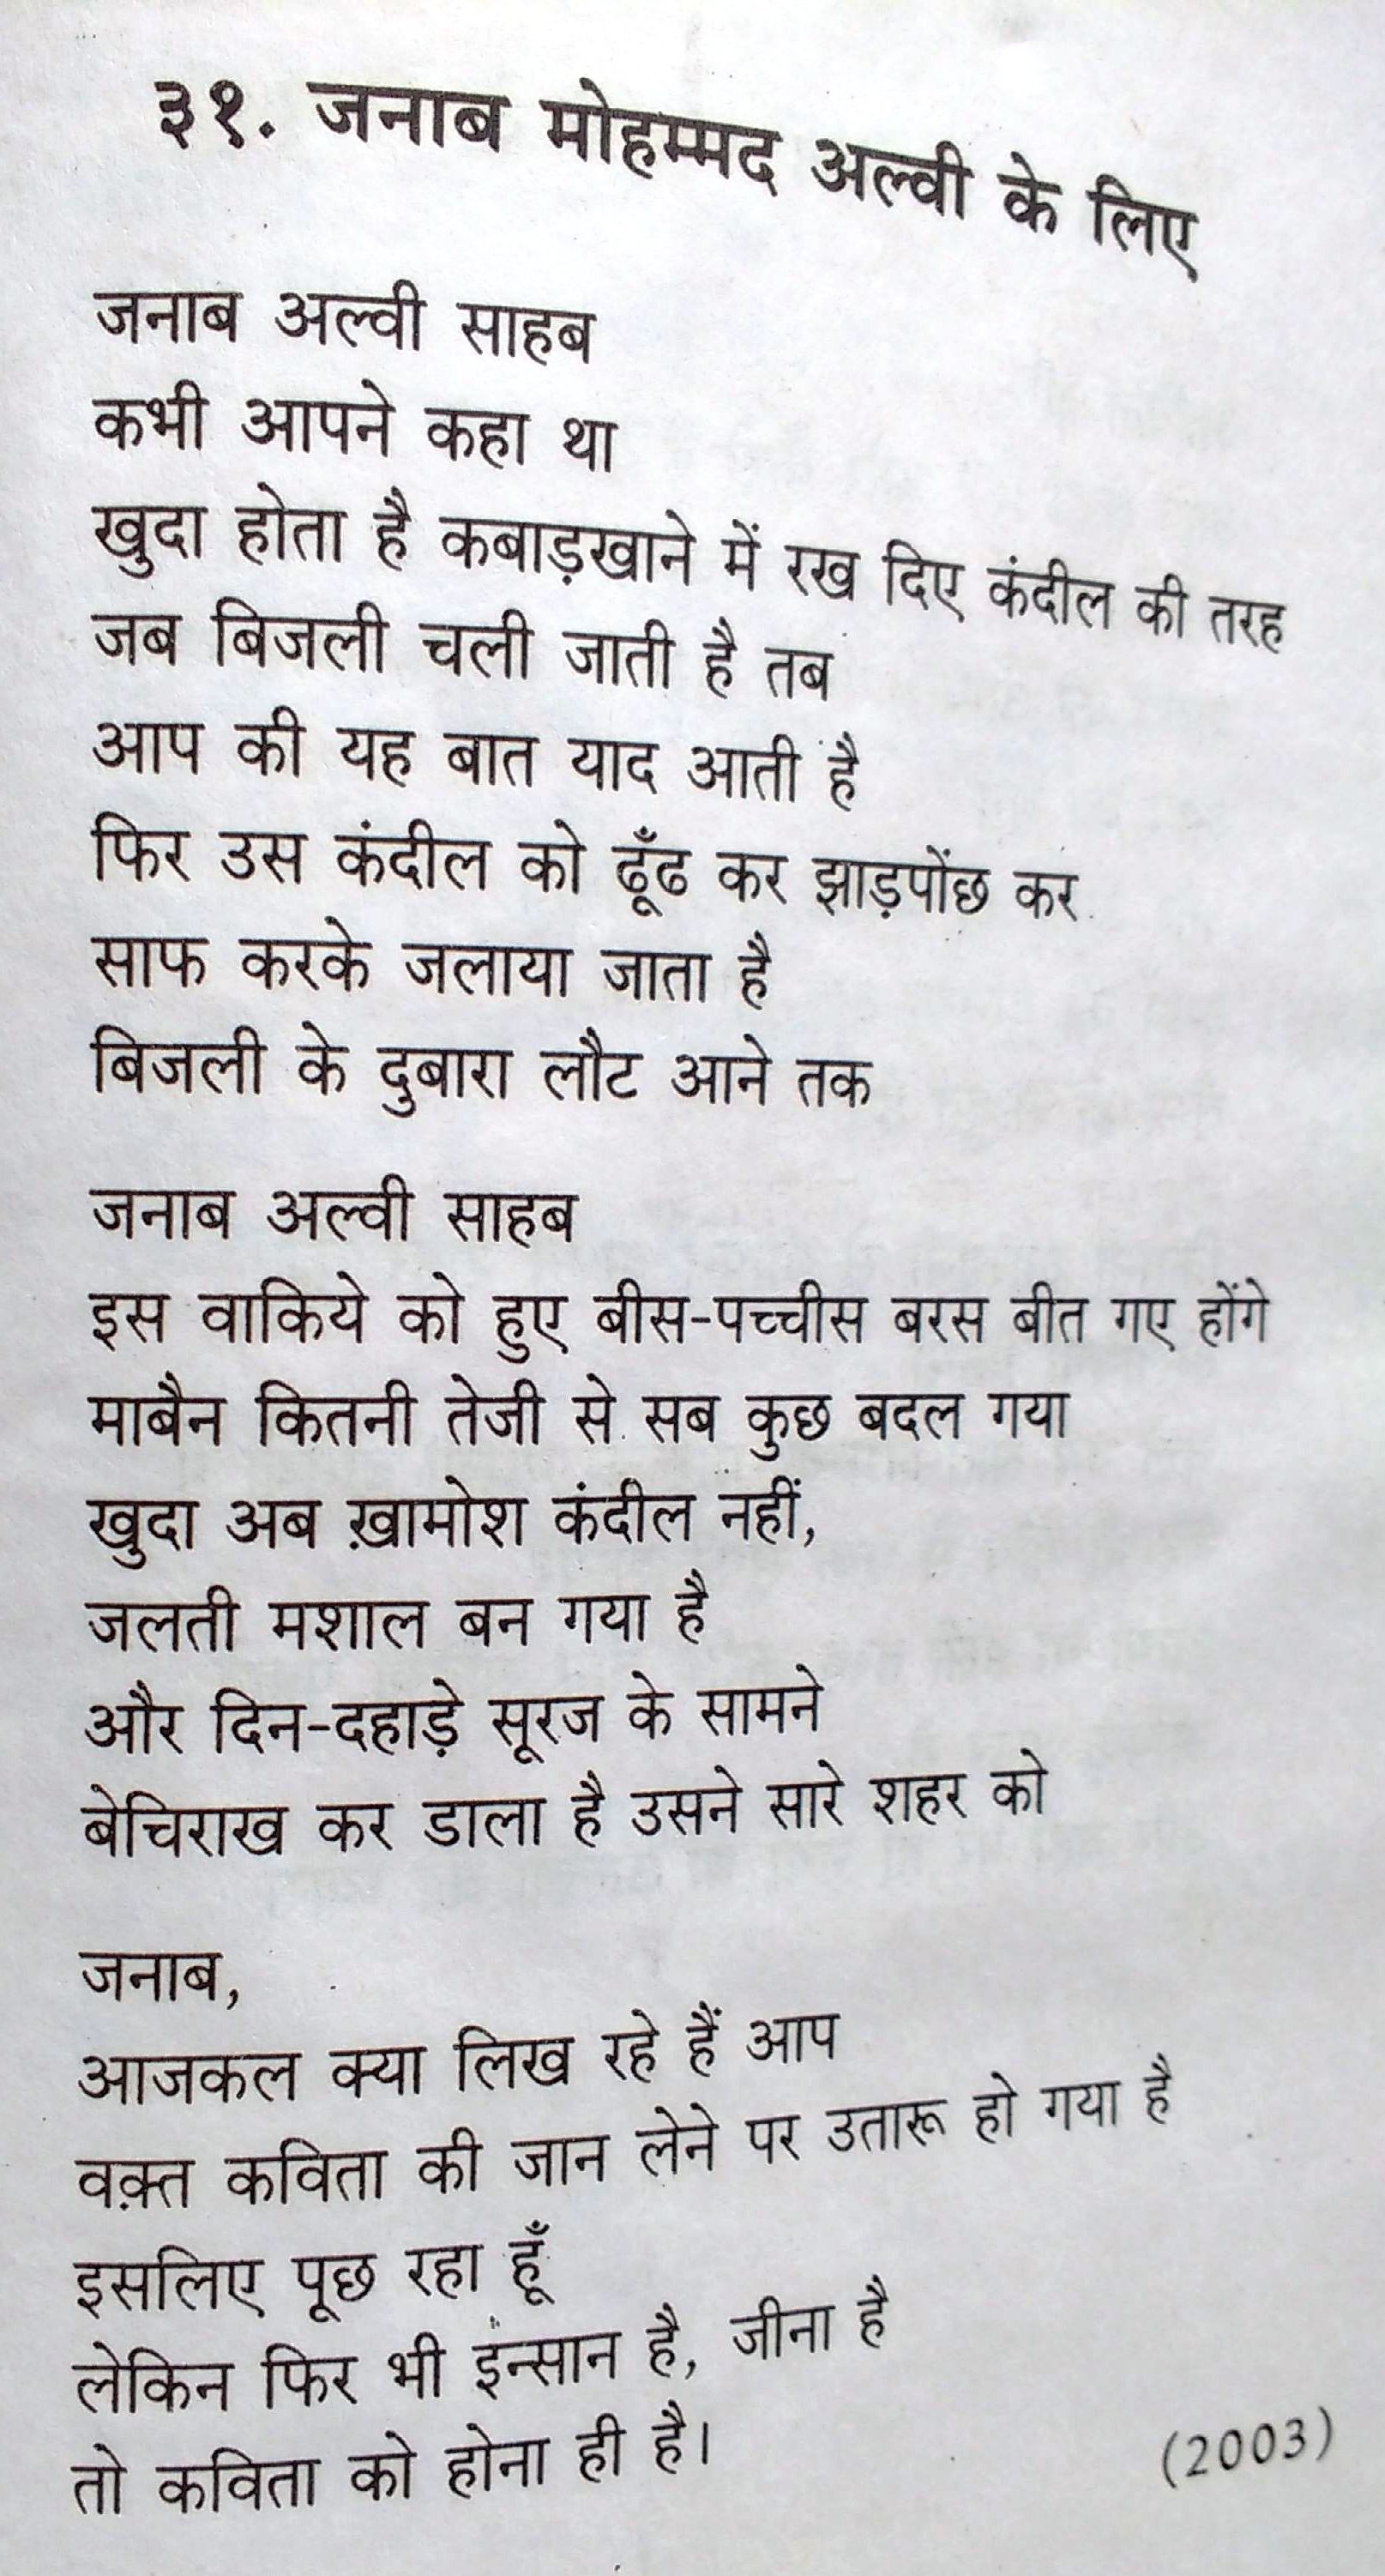 ३१. जनाब मोहम्मद अल्वी के लिए
जनाब अल्वी साहब
कभी आपने कहा था
खुदा होता है कबाड़खाने में रख दिए कंदील की तरह
जब बिजली चली जाती है तब
आप की यह बात याद आती है
फिर उस कंदील को ढूँढ कर झाड़पोंछ कर
साफ करके जलाया जाता है
बिजली के दुबारा लौट आने तक
जनाब अल्वी साहब
इस वाकिये को हुए बीस-पच्चीस बरस बीत गए होंगे
माबैन कितनी तेजी से सब कुछ बदल गया
खुदा अब ख़ामोश कंदील नहीं,
जलती मशाल बन गया है
और दिन-दहाड़े सूरज के सामने
बेचिराख कर डाला है उसने सारे शहर को
जनाब,
आजकल क्या लिख रहे हैं आप
वक़्त कविता की जान लेने पर उतारू हो गया है
इसलिए पूछ रहा हूँ
लेकिन फिर भी इन्सान है, जीना है
तो कविता को होना ही है।
(2003)